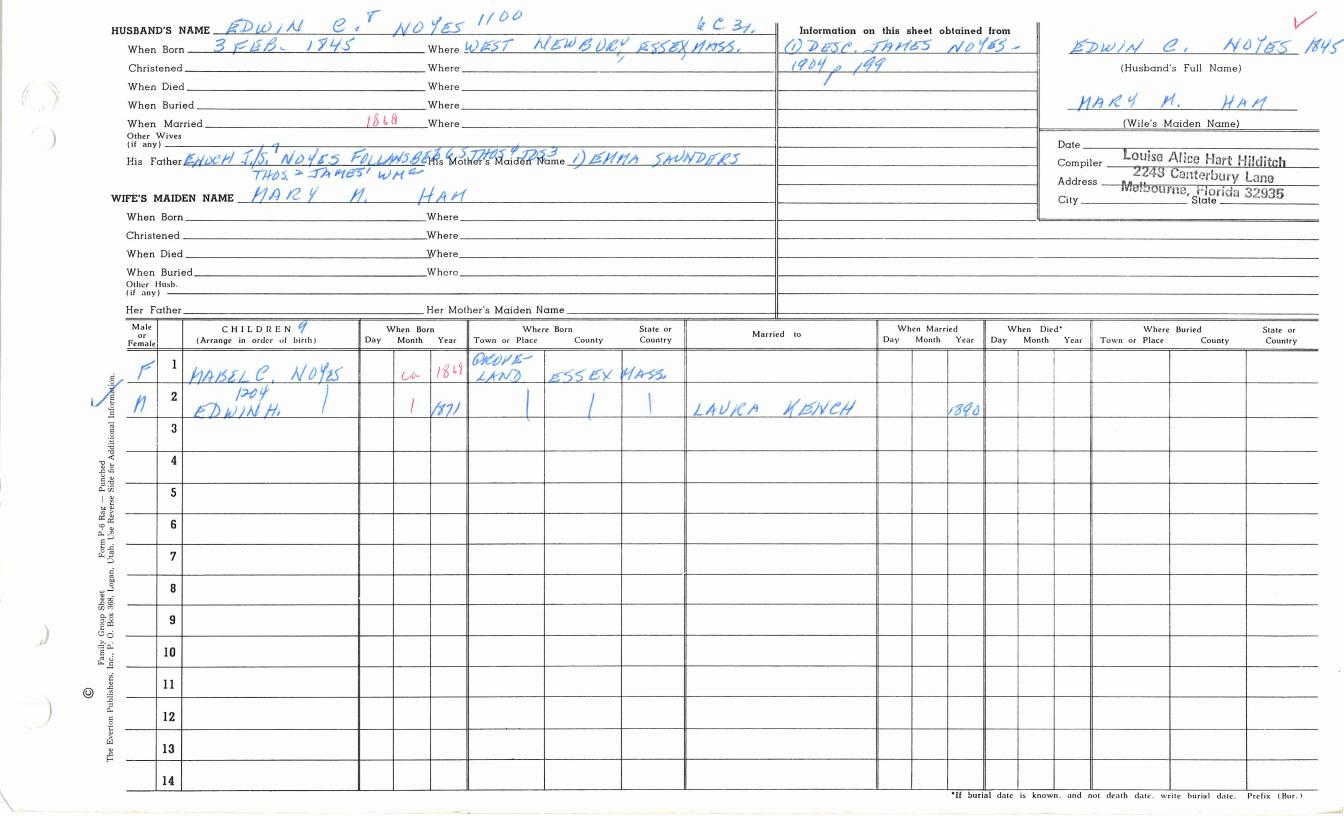 HUSBAND'S NAME EDWIN C.8 NOYES 1100
When Born 3 FEB. 1845 Where WEST NEWBURY, ESSEX, MASS.
Christened Where
When Died Where
When Buried Where
When Married 1868 Where
Other Wives
(if any)
His Father ENOCH NOYES His Mother's Maiden Name 1) EMMA SAUNDERS
THOS.2 JAMES1
WIFE'S MAIDEN NAME MARY M. HAM
When Born Where
Christened Where
When Died Where
When Buried Where
Other Husb.
(if any)
Her Father Her Mother's Maiden Name
Information on this sheet obtained from
(1) DESC. JAMES NOYES -
1904 p 199
EDWIN C. NOYES 1845
(Husband's Full Name)
MARY M. HAM
(Wife's Maiden Name)
Date
Compiler Louise Alice Hart Hilditch
Address 2243 Canterbury Lane
Melbourne, Florida 32935
City State
Male or Female CHILDREN 9 (Arrange in order of birth) When Born Day Month Year Where Born Town or Place County State or Country Married to When Married Day Month Year When Died* Day Month Year Where Buried Town or Place County State or Country
F 1 MABEL C. NOYES ca 1869 GROVE-
LAND ESSEX MASS.
M 2 1204
EDWIN H. 1871 LAURA KENCH 1890
3
4
5
6
7
8
9
10
11
12
13
14
*If burial date is known, and not death date, write burial date. Prefix (Bur.)
Family Group Sheet Form P-6 Rag — Punched
© The Everton Publishers, Inc., P. O. Box 368, Logan, Utah. Use Reverse Side for Additional Information.